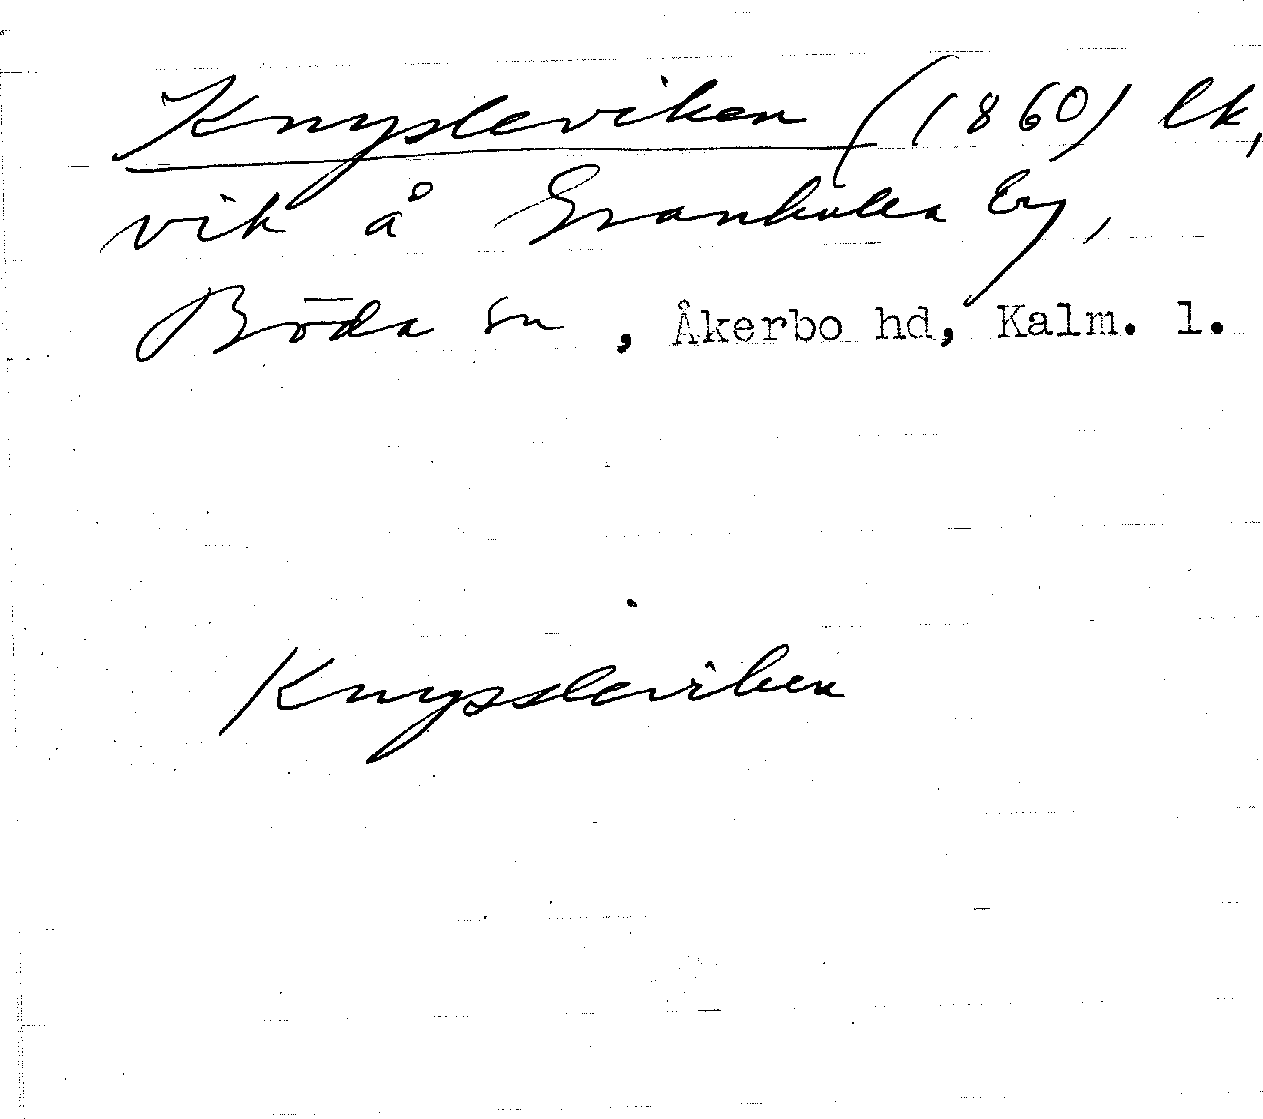 Knysleviken (1860) lk,
vik å Grankulla by,
Böda sn, Åkerbo hd, Kalm. l.
Knyssleviken